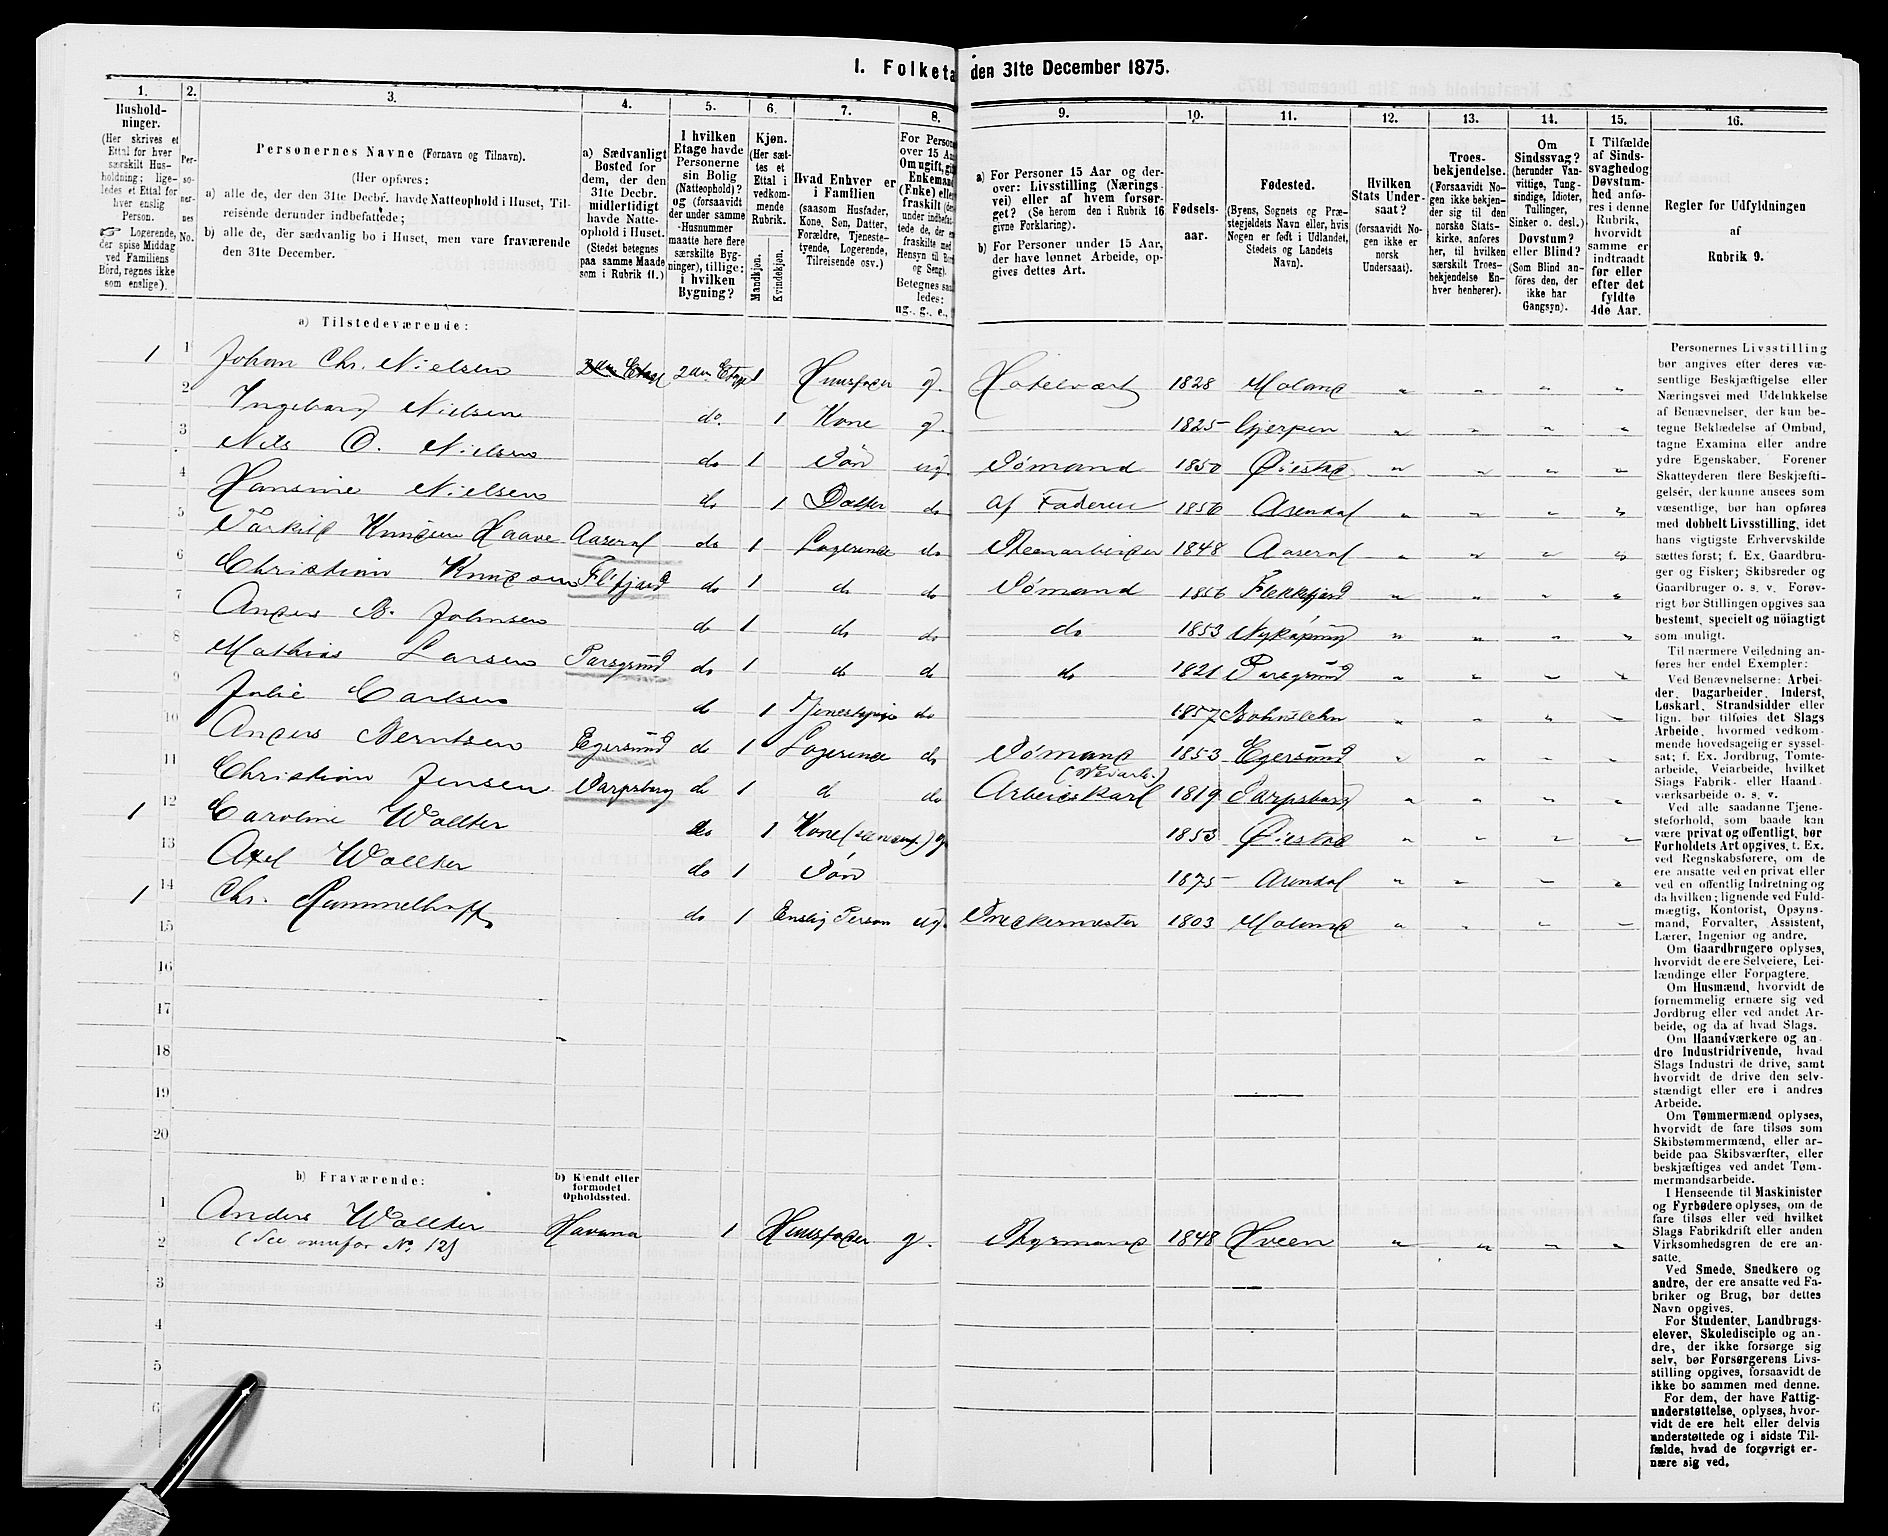 I. Folketa den 31te December 1875.
1. 2. 3. 4. 5. 6. 7. 8. 9. 10. 11. 12. 13. 14. 15. 16.
Hushold-
ninger.
(Her skrives et
Ettal for hver
særskilt Hus-
holdning; lige-
ledes et Ettal for
hver enslig
Person.
☞ Logerende,
der spise Middag
ved Familiens
Bord, regnes ikke
som enslige).
Per-
so-
ner-
nes
No.
Personernes Navne (Fornavn og Tilnavn).
(Her opføres:
a) alle de, der den 31te Decbr. havde Natteophold i Huset, Til-
reisende derunder indbefattede;
b) alle de, der sædvanlig bo i Huset, men vare fraværende
den 31te December.
a) Sædvanligt
Bosted for
dem, der den
31te Decbr.
midlertidigt
havde Natte-
ophold i Huset.
(Stedet betegnes
paa samme Maade
som i Rubrik 11.)
I hvilken
Etage havde
Personerne
sin Bolig
(Natteophold)?
og (forsaavidt
der under samme
Husnummer
maatte være flere
særskilte Byg-
ninger), tillige:
i hvilken
Bygning?
Kjøn.
(Her sæt-
tes et
Ettal i
vedkom-
mende
Rubrik.
Mandkjøn.
Kvindekjøn.
Hvad Enhver er
i Familien
(saasom Husfader,
Kone, Søn, Datter,
Forældre, Tjeneste-
tyende, Logerende,
Tilreisende osv.)
For Person
over 15 Aa
Om ugift, gift
Enkemand
(Enke) elle
fraskilt (der
under indbefat
tede de, der er
fraskilte med
Hensyn til Bord
og Seng).
Betegnes saa
ledes:
ug., g., e.,
a) For Personer 15 Aar og der-
over: Livsstilling (Nærings-
vei) eller af hvem forsør-
get? (Se herom den i Rubrik 16
givne Forklaring).
b) For Personer under 15 Aar,
der have lønnet Arbeide, op-
gives dettes Art.
Fødsels-
aar.
Fødested.
(Byens, Sognets og Præ-
stegjeldets Navn eller, hvis
Nogen er født i Udlandet,
Stedets og Landets
Navn).
Hvilken
Stats Under-
saat?
(forsaavidt No-
gen ikke er
norsk
Undersaat).
Troes-
bekjendelse.
(Forsaavidt No-
gen ikke bekjen-
der sig til den
norske Stats-
kirke, anføres
her, til hvilken
særskilt Troes-
bekjendelse En-
hver henhører).
Om
Sindssvag?
(herunder Van-
vittige, Tung-
sindige, Idioter,
Tullinger,
Sinker o. desl.)
Døvstum?
eller Blind?
(Som Blind an-
føres den, der
ikke har
Gangsyn).
I Tilfælde
af Sinds-
svaghed og
Døvstum-
hed anfø-
res i denne
Rubrik,
hvorvidt
samme er
indtraadt
før eller
efter det
fyldte
4de Aar.
Regler for Udfyldningen
af
Rubrik 9.
a) Tilstedeværende:
1 1 Johan Chr. Nielsen 2den Etage 1 Huusfader g. Hotelvært 1828 Moland " " " "
2 Ingeborg Nielsen do. 1 Kone g. 1825 Gjerpen " " " "
3 Nils O. Nielsen do 1 Søn ug Sømand 1850 Øiestad " " " "
4 Hansine Nielsen do 1 Datter do af Faderen 1856 Arendal " " " "
5 Tarkild Knudsen Haave Aaseral do 1 Logerende do Steenarbeider 1848 Aaseral " " " "
6 Christian Knudsen Fl.fjord do 1 do do Sømand 1856 Flekkefjord " " " "
7 Anders B. Johnsen do 1 do do do 1853 Nykøping " " " "
8 Mathias Larsen Porsgrund do 1 do do do 1821 Porsgrund " " " "
9 Julie Carlsen do 1 Tjenestepige do 1857 Bohuslehn " " " "
10 Anders Berntsen Egersund do 1 Logerende do Sømand 1853 Egersund " " " "
11 Christian Jensen Sarpsborg do 1 do do Arbeidskarl (Veiarb.) 1819 Sarpsborg " " " "
1 12 Caroline Wallter do 1 Kone g 1853 Øiestad " " " "
13 Axel Wallter do 1 Søn 1875 Arendal " " " "
1 14 Chr. Rummelhoff do 1 Enslig Person ug. Snedkermester 1803 Moland " " " "
15
16
17
18
19
20
b) Fraværende:
b) Kjendt eller
formodet
Opholdssted.
1 Anders Wallter Havana 1 Huusfader g. Styrmand 1848 Hveen " " " "
2 (See ovenfor No. 12)
3
4
5
6
Personernes Livsstilling
bør angives efter deres væ-
sentlige Beskjæftigelse eller
Næringsvei med Udelukkelse
af Benævnelser, der kun be-
tegne Beklædelse af Ombud,
tagne Examina eller andre
ydre Egenskaber. Forener
Skatteyderen flere Beskjæfti-
gelser, der kunne ansees som
væsentlige, bør han opføres
med dobbelt Livsstilling, idet
hans vigtigste Erhvervskilde
sættes først; f. Ex. Gaardbru-
ger og Fisker; Skibsreder og
Gaardbruger o. s. v. Forøv-
rigt bør Stillingen opgives saa
bestemt, specielt og nöiagtigt
som muligt.
Til nærmere Veiledning an-
føres her endel Exempler:
Ved Benævnelserne: Arbei-
der, Dagarbeider, Inderst,
Løskarl, Strandsidder eller
lign. bør tilføies det Slags
Arbeide, hvormed vedkom-
mende hovedsagelig er syssel-
sat; f. Ex. Jordbrug, Tomte-
arbeide, Veiarbeide, hvilket
Slags Fabrik- eller Haand-
værksarbeide o. s. v.
Ved alle saadanne Tjene-
steforhold, som baade kan
være privat og offentligt, bør
Forholdets Art opgives, t. Ex.
ved Regnskabsførere, om de
ere ansatte ved en privat eller
ved en offentlig Indretning og
da hvilken; lignende ved Fuld-
mægtig, Kontorist, Opsyns-
mand, Forvalter, Assistent,
Lærer, Ingeniør og andre.
Om Gaardbrugere oplyses,
hvorvidt de ere Selveiere, Lei-
lændinge eller Forpagtere.
Om Husmænd, hvorvidt de
fornemmelig ernære sig ved
Jordbrug eller ved andet Ar-
beide, og da af hvad Slags.
Om Haandværkere og an-
dre Industridrivende, hvad
Slags Industri de drive, samt
hvorvidt de drive den selv-
stændigt eller ere i andres
Arbeide.
Om Tømmermænd oplyses,
hvorvidt de fare tilsøs som
Skibstømmermænd, eller ar-
beide paa Skibsværfter, eller
beskjæftiges ved andet Tøm-
mermandsarbeide.
I Henseende til Maskinister
og Fyrbødere oplyses, om de
fare tilsøs eller ved hvilket
Slags Fabrikdrift eller anden
Virksomhedsgren de ere an-
satte.
Ved Smede, Snedkere og
andre, der ere ansatte ved Fa-
briker og Brug, bør dettes
Navn opgives.
For Studenter, Landbrugs-
elever, Skoledisciple og an-
dre, der ikke forsørge sig
selv, bør Forsørgerens Livs-
stilling opgives, forsaavidt de
ikke bo sammen med denne.
For dem, der have Fattig-
understøttelse, oplyses, hvor-
vidt de ere helt eller delvis
understøttede og i sidste Til-
fælde, hvad de forøvrigt er-
nære sig ved.